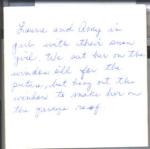 Laurie and Amy in
with their snow
girl. We set her on the
window sill for the
picture, but hung out the
window to make her on
the garage roof.